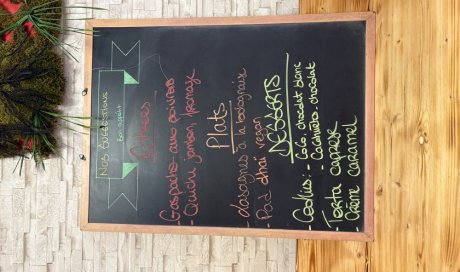 Nos Suggestions
Bon appétit
Entrées
- Gaspacho aux poivrons
- Quiche jambon fromage
Plats
- Lasagnes à la bolognaise
- Pad thaï vegan
DESSERTS
- Cookies: - Coco chocolat blanc
- Cacahuètes chocolat
- Torta caprese
- Crème caramel